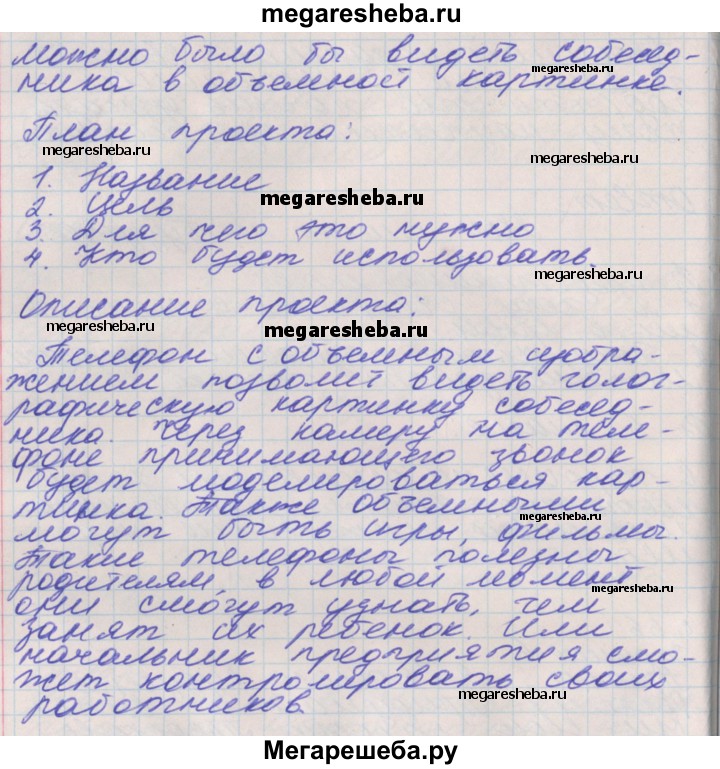 megaresheba.ru
можно было бы видеть собесед-
ника в объемной картинке.
megaresheba.ru
megaresheba.ru
План проекта:
megaresheba.ru
megaresheba.ru
1. Название
megaresheba.ru
2. Цель
3. Для чего это нужно
4. Кто будет использовать.
megaresheba.ru
Описание проекта:
megaresheba.ru
megaresheba.ru
Телефон с объемным изобра-
жением позволит видеть голог-
рафическую картинку собесед-
ника. Через камеру на теле-
фоне принимающего звонок
будет моделироваться кар-
тинка. Также объемными
megaresheba.ru
могут быть игры, фильмы.
Такие телефоны полезны
родителям, в любой момент
megaresheba.ru
они смогут узнать, чем
занят их ребенок. Или
начальник предприятия смо-
жет контролировать своих
megaresheba.ru
работников.
Мегарешеба.ру